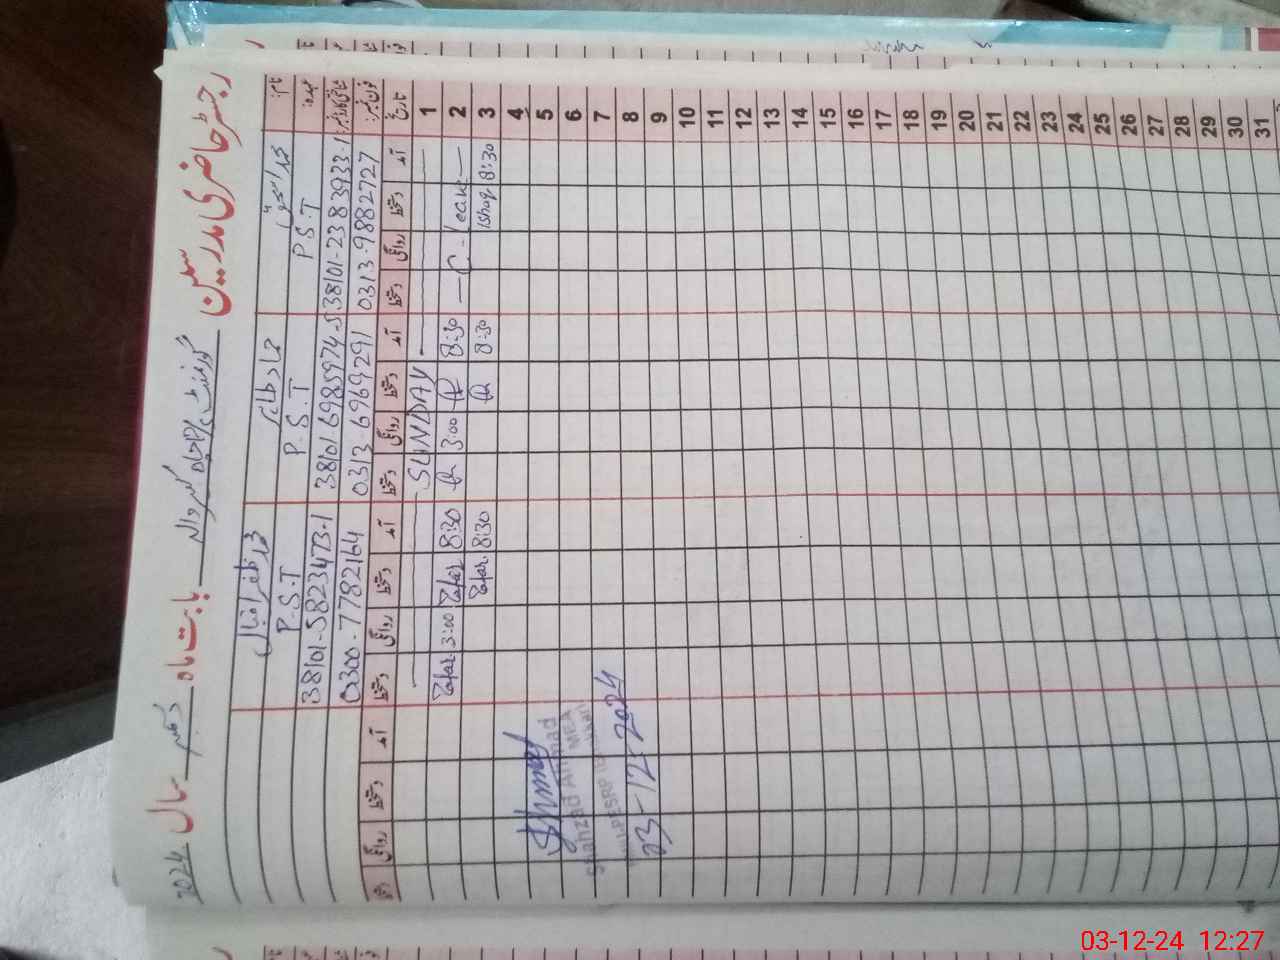 رجسٹر حاضری مدرسین گورنمنٹ بابت ماہ دسمبر سال 2024
نام: محمد اسحٰق محمد ظفر اقبال
عہدہ: P.S.T P.S.T P.S.T
38101-2383933-1 38101-6985974-5 38101-5823473-1
فون نمبر: 0313-9882727 0313-6969291 0300-7782164
تاریخ آمد دستخط روانگی دستخط آمد دستخط روانگی دستخط آمد دستخط روانگی دستخط آمد دستخط روانگی دستخط
1 SUNDAY
2 C-Leave 8:30 3:00 8:30 Zafar 3:00 Zafar
3 8:30 Ishaq 8:30 8:30 Zafar
4
5
6
7
8
9
10
11
12
13
14
15
16
17
18
19
20
21
22
23
24
25
26
27
28
29
30
31
Shahzad Ahmad
MEA
03-12-2024
03-12-24 12:27